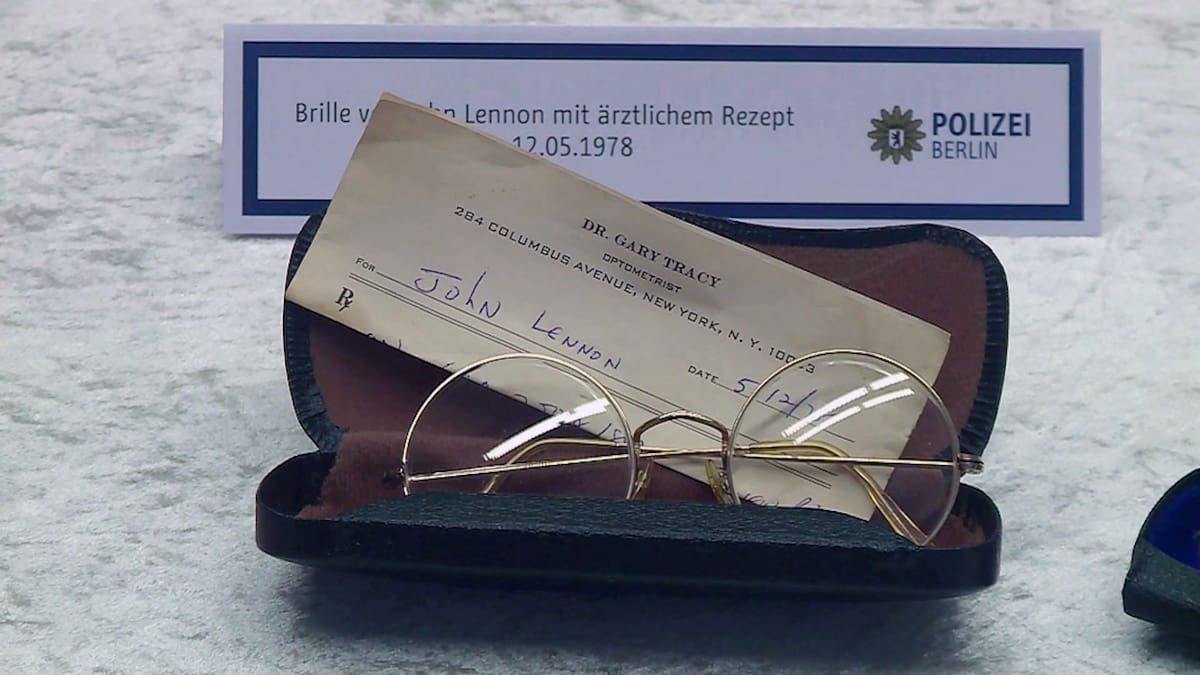 Brille Lennon mit ärztlichem Rezept
12.05.1978
POLIZEI
BERLIN
DR. GARY TRACY
OPTOMETRIST
284 COLUMBUS AVENUE, NEW YORK, N. Y.
FOR John Lennon
DATE 5/12/
Rx